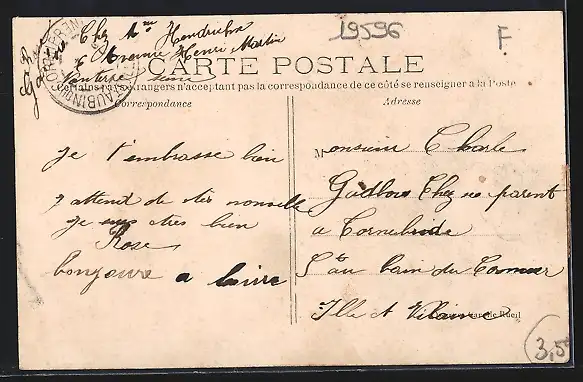 19596
F
Chez Mme Hendrickx
6 Avenue Henri Martin
Nanterre Seine
CARTE POSTALE
Certains pays étrangers n'acceptent pas la correspondance de ce côté se renseigner à la Poste
Correspondance
Adresse
Je t'embrasse bien
j attend de tes nouvelle
je suis tres bien
Rose
bonjoure a
Monsieur Charle
Chez se parent
a Cornebride
St au bain du Cormier
Ille et Vilaine
Rueil
3,5